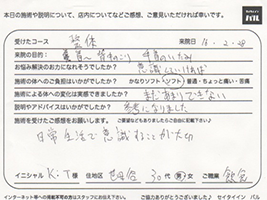 本日の施術や説明について、店内についてなどご感想、ご意見いただければ幸いです。
バル
受けたコース 整体 来院日 16.2.28
来院の目的 肩のいたみ
お悩み解決のお力になれそうでしたか? 意識していければ
施術の体へのご負担はいかがでしたか? かなりソフト・ソフト・普通・ちょっと痛い・苦痛
施術による体への変化は実感できましたか? まだあまりできない
説明やアドバイスはいかがでしたか? 参考になりました
施術を受けたご感想をお願いします。
日常生活で意識することが大切
イニシャル K・T 様 お住地区 世田谷 30代 男・女 ご職業 飲食
インターネット等への掲載不可の方はスタッフにお伝え下さい。 ご協力ありがとうございました セイタイイン バル